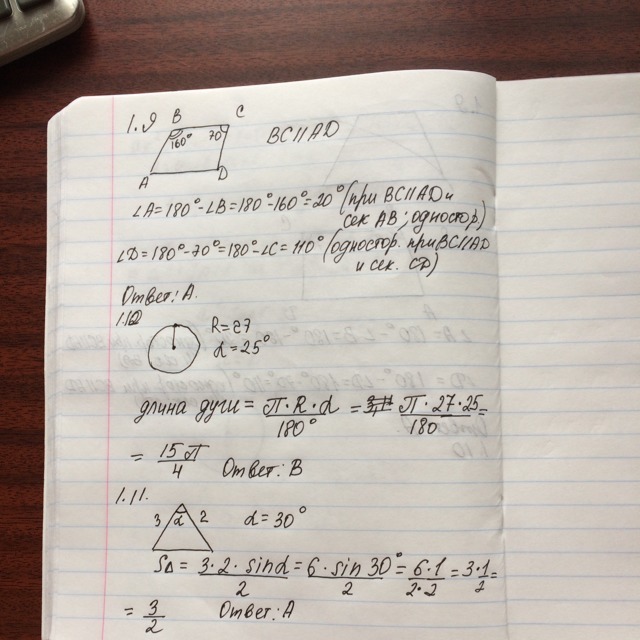 1.9
B C
160° 70°
A D
BC||AD
∠A=180°-∠B=180°-160°=20° (при BC||AD и
сек AB; одностор)
∠D=180°-70°=180°-∠C=110° (одностор. при BC||AD
и сек. CD)
Ответ: А.
1.10
R=27
α=25°
длина дуги = П·R·α/180° = П·27·25/180 =
= 15П/4 Ответ: В
1.11.
3 α 2 α=30°
S△ = 3·2·sinα/2 = 6·sin30°/2 = 6·1/2·2 = 3·1/2 =
= 3/2 Ответ: А